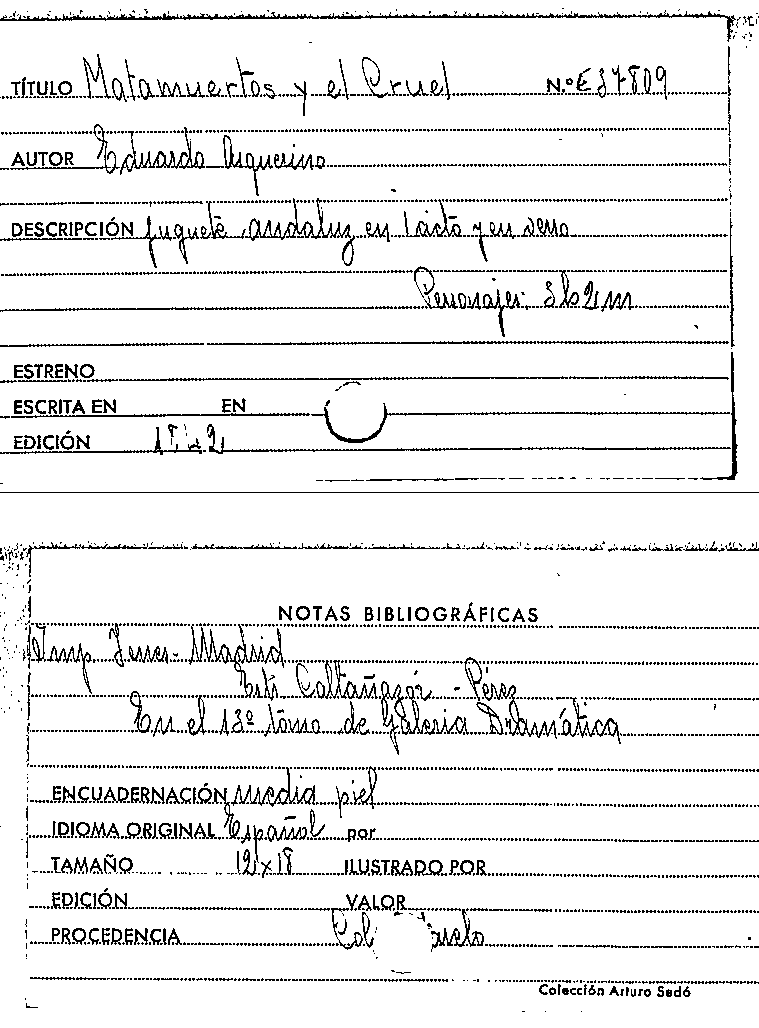 TÍTULO Matamuertos y el Cruel N.º E 37809
AUTOR Eduardo Asquerino
DESCRIPCIÓN juguete andaluz en 1 acto y en verso
Personajes: 3h 2m
ESTRENO
ESCRITA EN EN
EDICIÓN
NOTAS BIBLIOGRÁFICAS
Imp. Madrid
Caltañazor - Pérez
En el 13º tomo de Galeria Dramática
ENCUADERNACIÓN media piel
IDIOMA ORIGINAL Español por
TAMAÑO 12 x 18 ILUSTRADO POR
EDICIÓN VALOR
PROCEDENCIA Col.
Colección Arturo Sedó